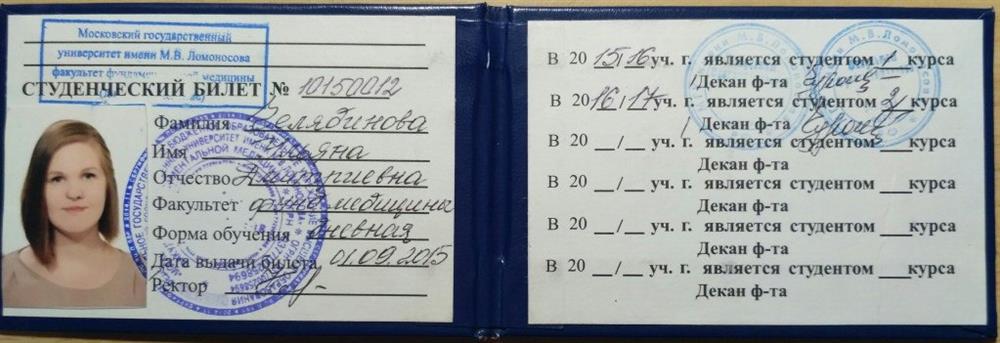 Московский государственный
университет имени М.В. Ломоносова
факультет фундаментальной медицины
СТУДЕНЧЕСКИЙ БИЛЕТ № 10150012
Фамилия Челябинова
Имя
Отчество Дмитриевна
Факультет фунд. медицины
Форма обучения дневная
Дата выдачи билета 01.09.2015
Ректор
В 2015/16 уч. г. является студентом 1 курса
Декан ф-та
В 2016/17 уч. г. является студентом 2 курса
Декан ф-та
В 20 __/__ уч. г. является студентом ___курса
Декан ф-та
В 20 __/__ уч. г. является студентом ___курса
Декан ф-та
В 20 __/__ уч. г. является студентом ___курса
Декан ф-та
В 20 __/__ уч. г. является студентом ___курса
Декан ф-та